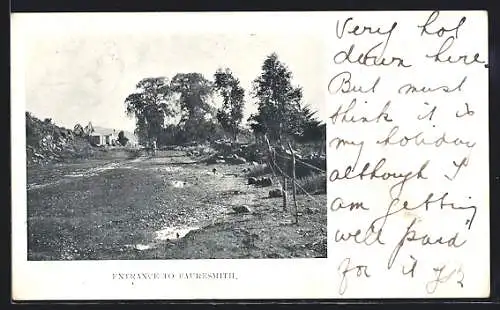 Very hot
down here.
But must
think it is
my holiday
although I
am getting
well paid
for it
ENTRANCE TO FAURESMITH.